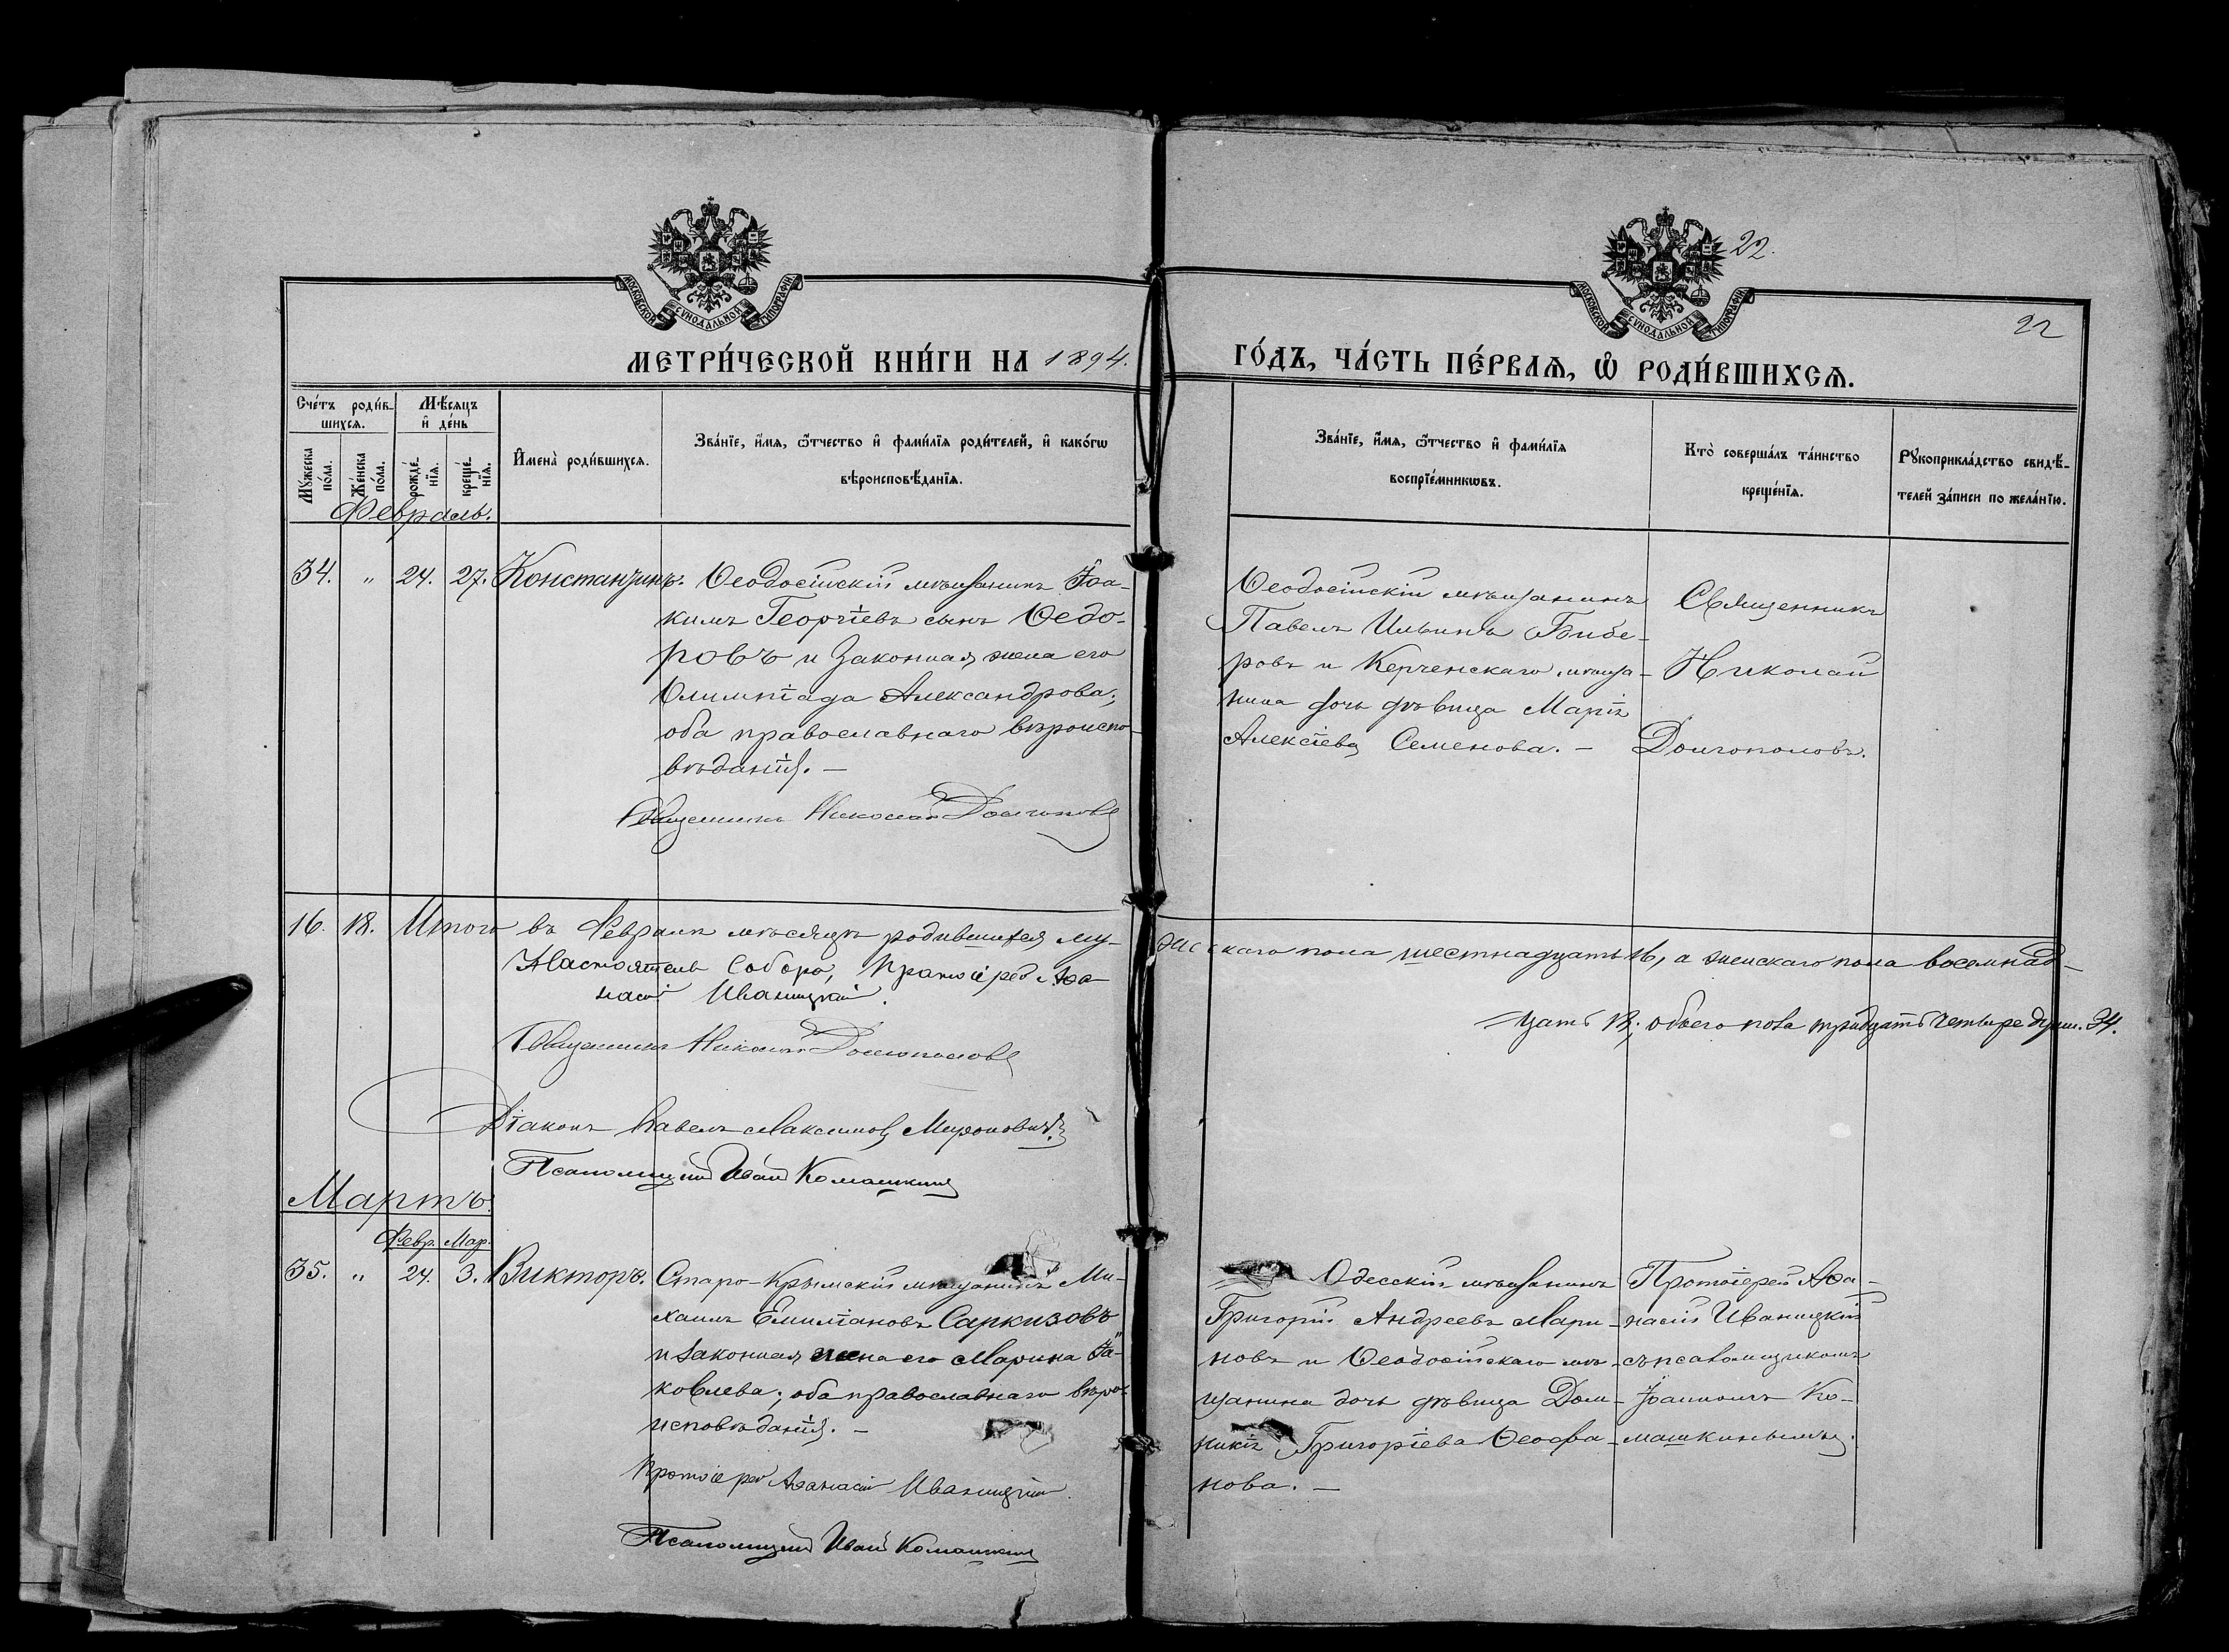 22.
22
МОСКОВСКОЙ СУНОДАЛЬНОЙ ТИПОГРАФІИ
МОСКОВСКОЙ СУНОДАЛЬНОЙ ТИПОГРАФІИ
МЕТРИ́ЧЕСКОЙ КНИ́ГИ НА 1894. ГО́ДЪ, ЧА́СТЬ ПЕ́РВАѦ, Ѡ҆ РОДИ́ВШИХСѦ.
Сче́тъ роди́в-
шихсѧ.
Мꙋ́жеска по́ла.
Же́нска по́ла.
Мѣ́сѧцъ
и҆ де́нь
рожде́-нїѧ.
креще́-нїѧ.
И҆мена̀ роди́вшихсѧ.
Зва́нїе, и҆́мѧ, ѻ҆́тчество и҆ фами́лїѧ роди́телей, и҆ како́гѡ
вѣроисповѣ́данїѧ.
Зва́нїе, и҆́мѧ, ѻ҆́тчество и҆ фами́лїѧ
воспрїе́мникѡвъ.
Кто̀ соверша́лъ та́инство
креще́нїѧ.
Рꙋкоприкла́дство свидѣ́-
телей за́писи по жела́нїю.
Февраль.
34. " 24. 27. Константинъ.
Ѳеодосійскій мѣщанинъ Іоа-
кимъ Георгіевъ сынъ Ѳедо-
ровъ и законная жена его
Олимпіада Александрова;
оба православнаго вѣроиспо-
вѣданія. —
Священникъ Николай Долгополовъ
Ѳеодосійскій мѣщанинъ
Павелъ Ильинъ Бибе-
ровъ и Керченскаго мѣща-
нина дочь дѣвица Марія
Алексіева Семенова. —
Священникъ
Николай
Долгополовъ.
16. 18. Итого въ Февралѣ мѣсяцѣ родившихся му-
жескаго пола шестнадцать 16, а женскаго пола восемнад-
цать 18; обоего пола тридцать четыре души. 34.
Настоятель Собора, Протоіерей Аѳа-
насій Иваницкій.
Священникъ Николай Долгополовъ
Діаконъ Павелъ Максимовъ Мироновичъ
Псаломщикъ Иванъ Комашкинъ
Мартъ.
Февр. Мар.
35. " 24. 3. Викторъ.
Старо-Крымскій мѣщанинъ Ми-
хаилъ Емиліановъ Саркизовъ
и законная жена его Марина Іа-
ковлева; оба православнаго вѣро-
исповѣданія. —
Протоіерей Аѳанасій Иваницкій
Псаломщикъ Иванъ Комашкинъ
Одесскій мѣщанинъ
Григорій Андреевъ Мари-
новъ и Ѳеодосійскаго мѣ-
щанина дочь дѣвица Дом-
никія Григоріева Ѳеофа-
нова. —
Протоіерей Аѳа-
насій Иваницкій
съ псаломщикомъ
Іоанномъ Ко-
машкинымъ.